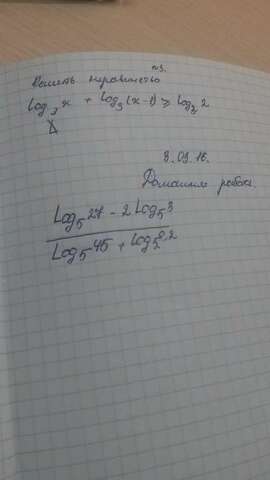 №3.
Решить неравенство
log₃ x + log₃ (x-1) ≥ log₃ 2
9.09.16.
Домашняя работа.
Log₅ 27 - 2 Log₅ 3
Log₅ 45 + log₅ 0,2